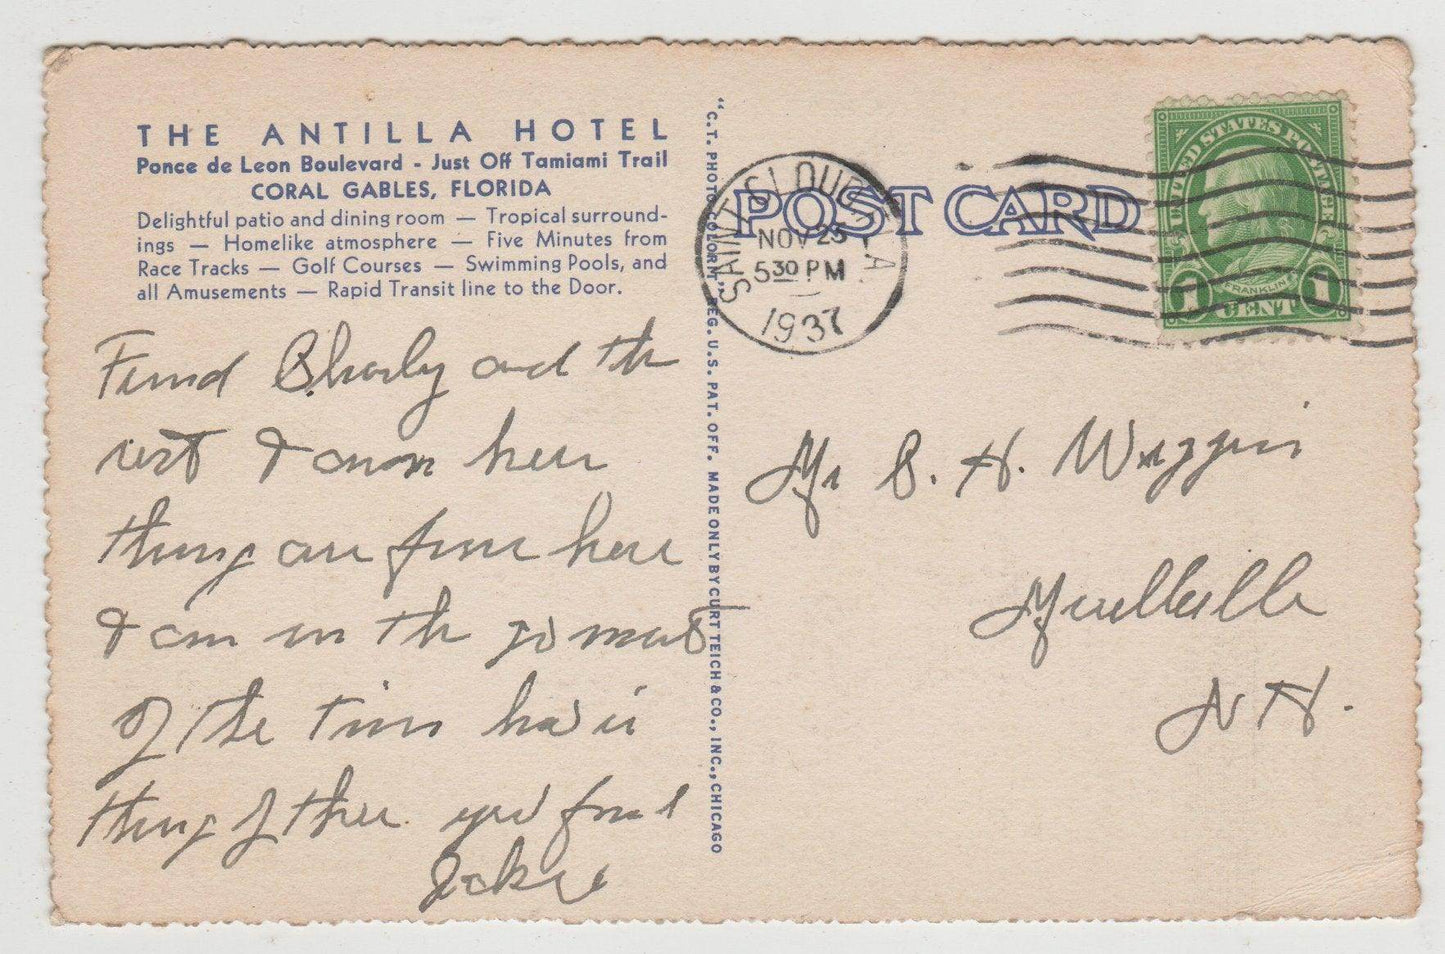 THE ANTILLA HOTEL
Ponce de Leon Boulevard - Just Off Tamiami Trail
CORAL GABLES, FLORIDA
Delightful patio and dining room — Tropical surround-
ings — Homelike atmosphere — Five Minutes from
Race Tracks — Golf Courses — Swimming Pools, and
all Amusements — Rapid Transit line to the Door.
Charly and the
rest
thing are fine here
I am in the most
of the time
thing of there
"C.T. PHOTO COLORIT" REG. U.S. PAT. OFF. MADE ONLY BY CURT TEICH & CO., INC., CHICAGO
POST CARD
SAINT CLOUD, FLA.
NOV 23
5 30 PM
1937
UNITED STATES POSTAGE
FRANKLIN
1 CENT 1
Mr S. H. Wiggin
N H.